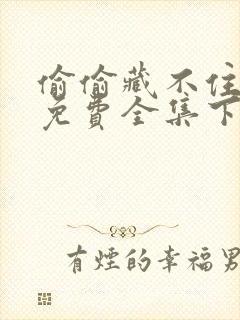 偷偷藏不住
免費全集下
有煙的幸福男